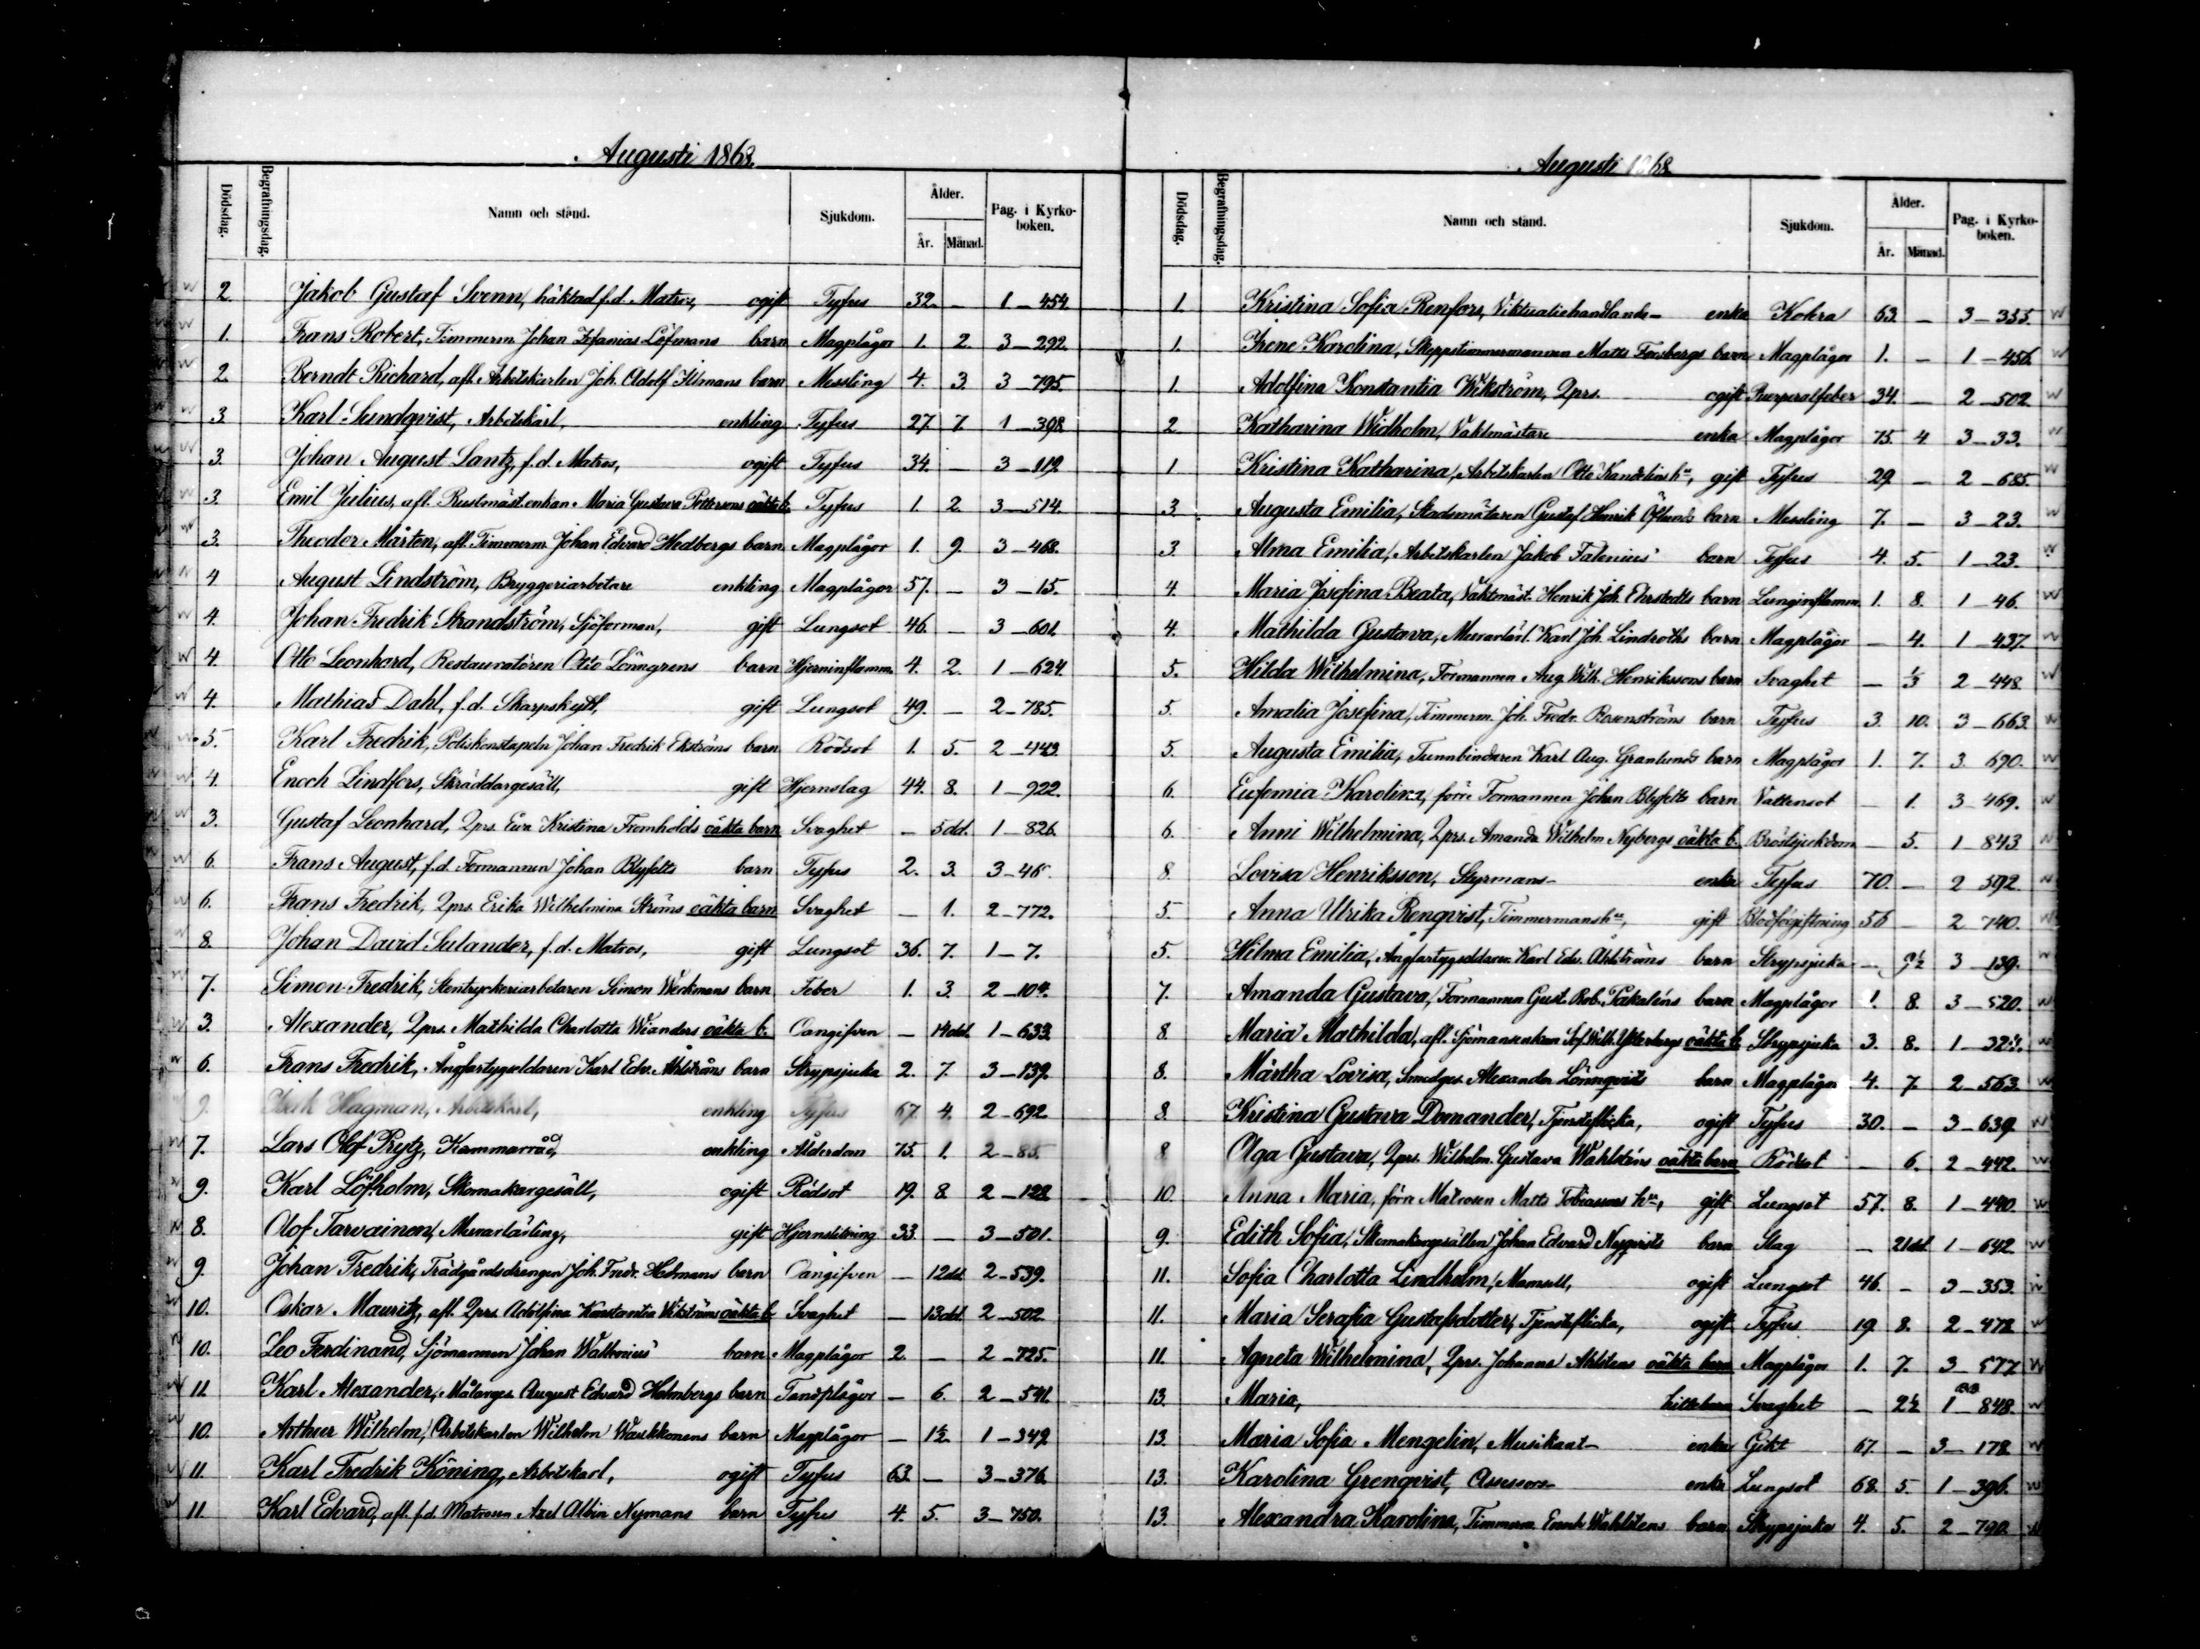 Augusti 1868.
Dödsdag. Begrafningsdag. Namn och stånd. Sjukdom. Ålder. År. Månad. Pag. i Kyrko-boken.
2 Jakob Gustaf Svenn, häktad f.d. Matros, ogift Tyfus 32. — 1 — 454
1. Frans Robert, Timmerm. Johan Zefanias Löfmans barn Magplågor 1. 2. 3 — 292
2. Berndt Richard, afl. Arbetskarlen Joh. Adolf Ilmans barn Messling 4. 3. 3 — 795.
3. Karl Sundqvist, Arbetskarl, enkling Tyfus 27. 7. 1 — 398
3. Johan August Lantz, f.d. Matros, ogift Tyfus 34. — 3 — 119.
3. Emil Julius, afl. Rustmäst.enkan Maria Gustava Pettersons oäkta b. Tyfus 1. 2. 3 — 514.
3. Theodor Mårten, afl. Timmerm. Johan Edvard Hedbergs barn Magplågor 1. 9. 3 — 468.
4 August Lindström, Bryggeriarbetare enkling Magplågor 57. — 3 — 15.
4. Johan Fredrik Strandström, Sjöforman, gift Lungsot 46. — 3 — 601.
4. Otto Leonhard, Restauratören Otto Lönngrens barn Hjerninflamm. 4. 2. 1 — 624.
4. Mathias Dahl, f.d. Skarpskytt, gift Lungsot 49. — 2 — 785.
5. Karl Fredrik, Poliskonstapeln Johan Fredrik Ekströms barn Rödsot 1. 5. 2 — 443.
4. Enoch Lindfors, Skräddargesäll, gift Hjernslag 44. 8. 1 — 922.
3. Gustaf Leonhard, Qprs. Eva Kristina Fromholds oäkta barn Svaghet — 5 dd. 1 — 826.
6. Frans August, f.d. Formannen Johan Blyfelts barn Tyfus 2. 3. 3 — 46
6. Frans Fredrik, Qprs. Erika Wilhelmina Ströms oäkta barn Svaghet — 1. 2 — 772.
8. Johan David Selander, f.d. Matros, gift Lungsot 36. 7. 1 — 7.
7. Simon Fredrik, Stentryckeriarbetaren Simon Weckmans barn Feber 1. 3. 2 — 104.
3. Alexander, Qprs. Mathilda Charlotta Wianders oäkta b. Oangifven — 14 dd. 1 — 633.
6. Frans Fredrik, Ångfartygseldaren Karl Edv. Ahlströms barn Strypsjuka 2. 7. 3 — 139.
9. Hagman, Arbetskarl, enkling Tyfus 67. 4. 2 — 692
7. Lars Olof Prytz, Kammarråd, enkling Ålderdom 75. 1. 2 — 85.
9. Karl Löfholm, Skomakargesäll, ogift Rödsot 19. 8. 2 — 128
8. Olof Tarvainen, Murarlärling, gift Hjernslitning 33. — 3 — 501.
9. Johan Fredrik, Trädgårdsdrengen Joh. Fredr. Helmans barn Oangifven — 12 dd. 2 — 539.
10. Oskar Mauritz, afl. Qprs. Adolfina Konstantia Wikströms oäkta b. Svaghet — 13 dd. 2 — 502.
10. Leo Ferdinand, Sjömannen Johan Waltonius' barn Magplågor 2. — 2 — 725.
11. Karl Alexander, Målarges. August Edvard Holmbergs barn Tandplågor — 6. 2 — 541.
10. Arthur Wilhelm, Arbetskarlen Wilhelm Waukkonens barn Magplågor — 1½ 1 — 349.
11. Karl Fredrik Köning, Arbetskarl, ogift Tyfus 63. — 3 — 376.
11. Karl Edvard, afl. f.d. Matrosen Axel Albin Nymans barn Tyfus 4. 5. 3 — 750.
Augusti 1868
Dödsdag. Begrafningsdag. Namn och stånd. Sjukdom. Ålder. År. Månad. Pag. i Kyrko-boken.
1. Kristina Sofia Renfors, Viktualiehandlande- enka Kolera 63. — 3 — 355.
1. Irene Karolina, Skeppstimmermannen Matts Forsbergs barn Magplågor 1. — 1 — 456.
1. Adolfina Konstantia Wikström, Qprs. ogift Puerperalfeber 34. — 2 — 502
2. Katharina Widholm, Vaktmästare enka Magplågor 75. 4 3 — 33.
1 Kristina Katharina, Arbetskarlen Otto Kandelins hu, gift Tyfus 29 — 2 — 685.
3. Augusta Emilia, Stadsmätaren Gustaf Henrik Öflunds barn Messling 7. — 3 — 23.
3. Alma Emilia, Arbetskarlen Jakob Falenius' barn Tyfus 4. 5. 1 — 23.
4. Maria Josefina Beata, Vaktmäst. Henrik Joh. Ehrstedts barn Lunginflamm. 1. 8. 1 — 46.
4. Mathilda Gustava, Murarlärl. Karl Joh. Lindroths barn Magplågor — 4. 1 — 437.
5. Hilda Wilhelmina, Formannen Aug. Wilh. Henrikssons barn Svaghet — ⅓ 2 — 448.
5. Amalia Josefina, Timmerm. Joh. Fredr. Rosenströms barn Tyfus 3. 10. 3 — 663.
5. Augusta Emilia, Tunnbindaren Karl Aug. Granlunds barn Magplågor 1. 7. 3. 690.
6. Eufemia Karolina, förre Formannen Johan Blyfelts barn Vattensot — 1. 3 — 469.
6. Anni Wilhelmina, Qprs. Amanda Wilhelm. Nybergs oäkta b. Bröstsjukdom — 5. 1 — 843
8. Lovisa Henriksson, Styrmans- enka Tyfus 70. — 2 392.
5. Anna Ulrika Renqvist, Timmermanshu, gift Blodförgiftning 56 — 2 740.
5. Hilma Emilia, Ångfartygseldaren Karl Edv. Ahlströms barn Strypsjuka — 9½ 3 — 139.
7. Amanda Gustava, Formannen Gust. Rob. Pakaléns barn Magplågor 1. 8. 3 — 520.
8. Maria Mathilda, afl. Sjömansenkan Sof. Wilh. Ytterbergs oäkta b. Strypsjuka 3. 8. 1 — 324.
8. Märtha Lovisa, Smedges. Alexander Lönnqvists barn Magplågor 4. 7 2 — 563.
8. Kristina Gustava Domander, Tjensteflicka, ogift Tyfus 30. — 3 — 639.
8 Olga Gustava, Qprs. Wilhelm. Gustava Wahlsténs oäkta barn Rödsot — 6. 2 — 442.
10. Anna Maria, förre Matrosen Matts Tobiassons hu, gift Lungsot 57. 8. 1 — 440.
9. Edith Sofia, Skomakaregesällen Johan Edvard Nyqvists barn Slag — 21 dd. 1 — 642
11. Sofia Charlotta Lindholm, Mamsell, ogift Lungsot 46. — 3 — 353.
11. Maria Serafia Gustafsdotter, Tjensteflicka, ogift Tyfus 19 8. 2 — 472
11. Agneta Wilhelmina, Qprs. Johanna Ahlstens oäkta barn Magplågor 1. 7. 3 — 577
13. Maria, hittebarn Svaghet — 2½ 1 — 848.
13. Maria Sofia Mengelin, Musikant- enka Gikt 67. — 3 — 178
13. Karolina Grenqvist, Assessors- enka Lungsot 68. 5. 1 — 396.
13. Alexandra Karolina, Timmerm. Enok Wahlstens barn Strypsjuka 4. 5. 2 — 790.